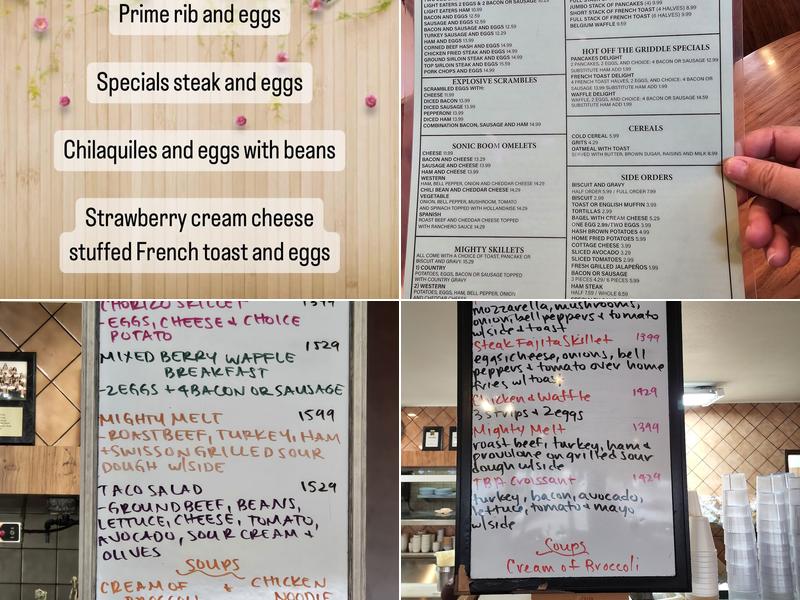 Prime rib and eggs
Specials steak and eggs
Chilaquiles and eggs with beans
Strawberry cream cheese
stuffed French toast and eggs
LIGHT EATERS 2 EGGS & 2 BACON OR SAUSAGE
BACON AND EGGS 12.59
SAUSAGE AND EGGS 12.59
BACON AND EGGS
TURKEY SAUSAGE AND EGGS 12.29
HAM AND EGGS 13.99
CORNED BEEF HASH AND EGGS 14.99
CHICKEN FRIED STEAK AND EGGS 15.99
GROUND SIRLOIN STEAK AND EGGS
TOP SIRLOIN STEAK AND EGGS 15.59
PORK CHOPS AND EGGS 14.99
EXPLOSIVE SCRAMBLES
SCRAMBLED EGGS WITH:
CHEESE 11.99
DICED BACON 13.99
DICED SAUSAGE 13.99
PEPPERONI 13.99
DICED HAM 13.99
COMBINATION BACON, SAUSAGE AND HAM 14.99
SONIC BOOM OMELETS
CHEESE 11.99
BACON AND CHEESE 13.29
SAUSAGE AND CHEESE 13.99
HAM AND CHEESE 13.99
WESTERN
HAM, BELL PEPPER, ONION AND CHEDDAR CHEESE 14.29
CHILI BEAN AND CHEDDAR CHEESE 14.29
VEGETABLE
ONION, BELL PEPPER, MUSHROOM, TOMATO
AND SPINACH TOPPED WITH HOLLANDAISE 14.29
SPANISH
ROAST BEEF AND CHEDDAR CHEESE TOPPED
WITH RANCHERO SAUCE 14.29
MIGHTY SKILLETS
ALL COME WITH A CHOICE OF TOAST, PANCAKE OR
BISCUIT AND GRAVY 15.29
1) COUNTRY
POTATOES, EGGS, BACON OR SAUSAGE TOPPED
WITH COUNTRY GRAVY
2) WESTERN
POTATOES, EGGS, HAM, BELL PEPPER, ONION
AND CHEDDAR CHEESE
JUMBO STACK OF PANCAKES (4) 9.99
SHORT STACK OF FRENCH TOAST (4 HALVES) 8.99
FULL STACK OF FRENCH TOAST (6 HALVES) 9.99
BELGIUM WAFFLE 9.59
HOT OFF THE GRIDDLE SPECIALS
PANCAKES DELIGHT
2 PANCAKES, 2 EGGS, AND CHOICE: 4 BACON OR SAUSAGE 12.99
SUBSTITUTE HAM ADD 1.99
FRENCH TOAST DELIGHT
4 FRENCH TOAST HALVES, 2 EGGS, AND CHOICE: 4 BACON OR
SAUSAGE 13.99 SUBSTITUTE HAM ADD 1.99
WAFFLE DELIGHT
WAFFLE, 2 EGGS, AND CHOICE: 4 BACON OR SAUSAGE 14.59
SUBSTITUTE HAM ADD 1.99
CEREALS
COLD CEREAL 5.99
GRITS 4.29
OATMEAL WITH TOAST
SERVED WITH BUTTER, BROWN SUGAR, RAISINS AND MILK 8.99
SIDE ORDERS
BISCUIT AND GRAVY
HALF ORDER 5.99 / FULL ORDER 7.99
BISCUIT 2.99
TOAST OR ENGLISH MUFFIN 3.99
TORTILLAS 2.99
BAGEL WITH CREAM CHEESE 5.29
ONE EGG 2.99/TWO EGGS 3.99
HASH BROWN POTATOES 4.99
HOME FRIED POTATOES 5.99
COTTAGE CHEESE 3.99
SLICED AVOCADO 3.29
SLICED TOMATOES 2.99
FRESH GRILLED JALAPEÑOS 1.99
BACON OR SAUSAGE
3 PIECES 4.29/ 6 PIECES 5.99
HAM STEAK
HALF 7.59 / WHOLE 8.59
CHORIZO SKILLET 1399
-EGGS, CHEESE & CHOICE
POTATO
MIXED BERRY WAFFLE 1529
BREAKFAST
-2EGGS + 4BACON OR SAUSAGE
MIGHTY MELT 1599
-ROAST BEEF, TURKEY, HAM
+SWISS ON GRILLED SOUR
DOUGH W/SIDE
TACO SALAD 1529
-GROUND BEEF, BEANS,
LETTUCE, CHEESE, TOMATO,
AVOCADO, SOUR CREAM &
OLIVES
SOUPS
CREAM OF & CHICKEN
BROCCOLI NOODLE
mozzarella, mushrooms,
onion, bell peppers & tomato
w/side & toast
Steak Fajita Skillet 1399
eggs, cheese, onions, bell
peppers & tomato over home
fries w/toast
Chicken & Waffle 1429
3 strips & 2eggs
Mighty Melt 1399
roast beef, turkey, ham &
provolone on grilled sour
dough w/side
TBA Croissant 1429
turkey, bacon, avocado,
lettuce, tomato & mayo
w/side
Soups
Cream of Broccoli